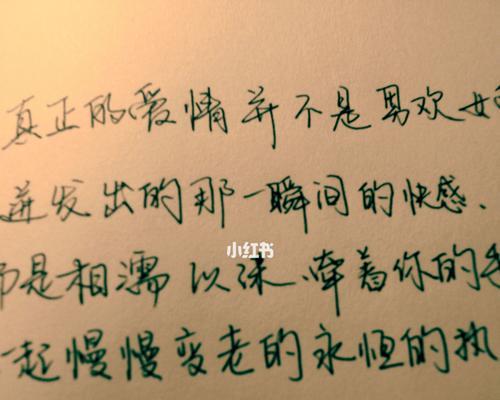 真正的爱情并不是男欢女
迸发出的那一瞬间的快感.
而是相濡以沫、牵着你的手
起慢慢变老的永恒的执
小红书